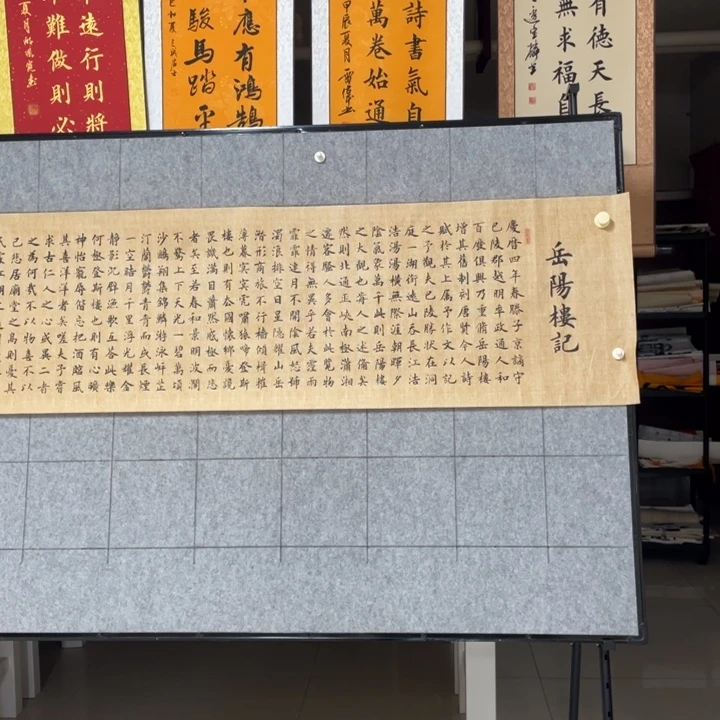 有德天長
無求福自
詩書氣自
萬卷始通
甲辰夏月
應有鴻鵠
駿馬踏平
遠行則將
難做則必
岳陽樓記
慶曆四年春滕子京謫守
巴陵郡越明年政通人和
百廢俱興乃重脩岳陽樓
增其舊制刻唐賢今人詩
賦於其上屬予作文以記
之予觀夫巴陵勝狀在洞
庭一湖銜遠山吞長江浩
浩湯湯橫無際涯朝暉夕
陰氣象萬千此則岳陽樓
之大觀也前人之述備矣
然則北通巫峽南極瀟湘
遷客騷人多會於此覽物
之情得無異乎若夫霪雨
霏霏連月不開陰風怒號
濁浪排空日星隱耀山岳
潛形商旅不行檣傾楫摧
薄暮冥冥虎嘯猿啼登斯
樓也則有去國懷鄉憂讒
畏譏滿目蕭然感極而悲
者矣至若春和景明波瀾
不驚上下天光一碧萬頃
沙鷗翔集錦鱗游泳岸芷
汀蘭鬱鬱青青而或長煙
一空皓月千里浮光耀金
靜影沉璧漁歌互答此樂
何極登斯樓也則有心曠
神怡寵辱偕忘把酒臨風
其喜洋洋者矣嗟夫予嘗
求古仁人之心或異二者
之為何哉不以物喜不以
己悲居廟堂之高則憂其